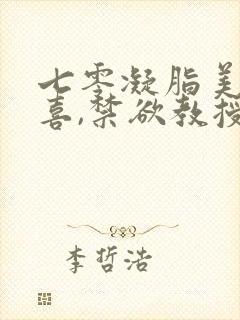 七零凝脂美
喜,禁欲教授
李哲浩